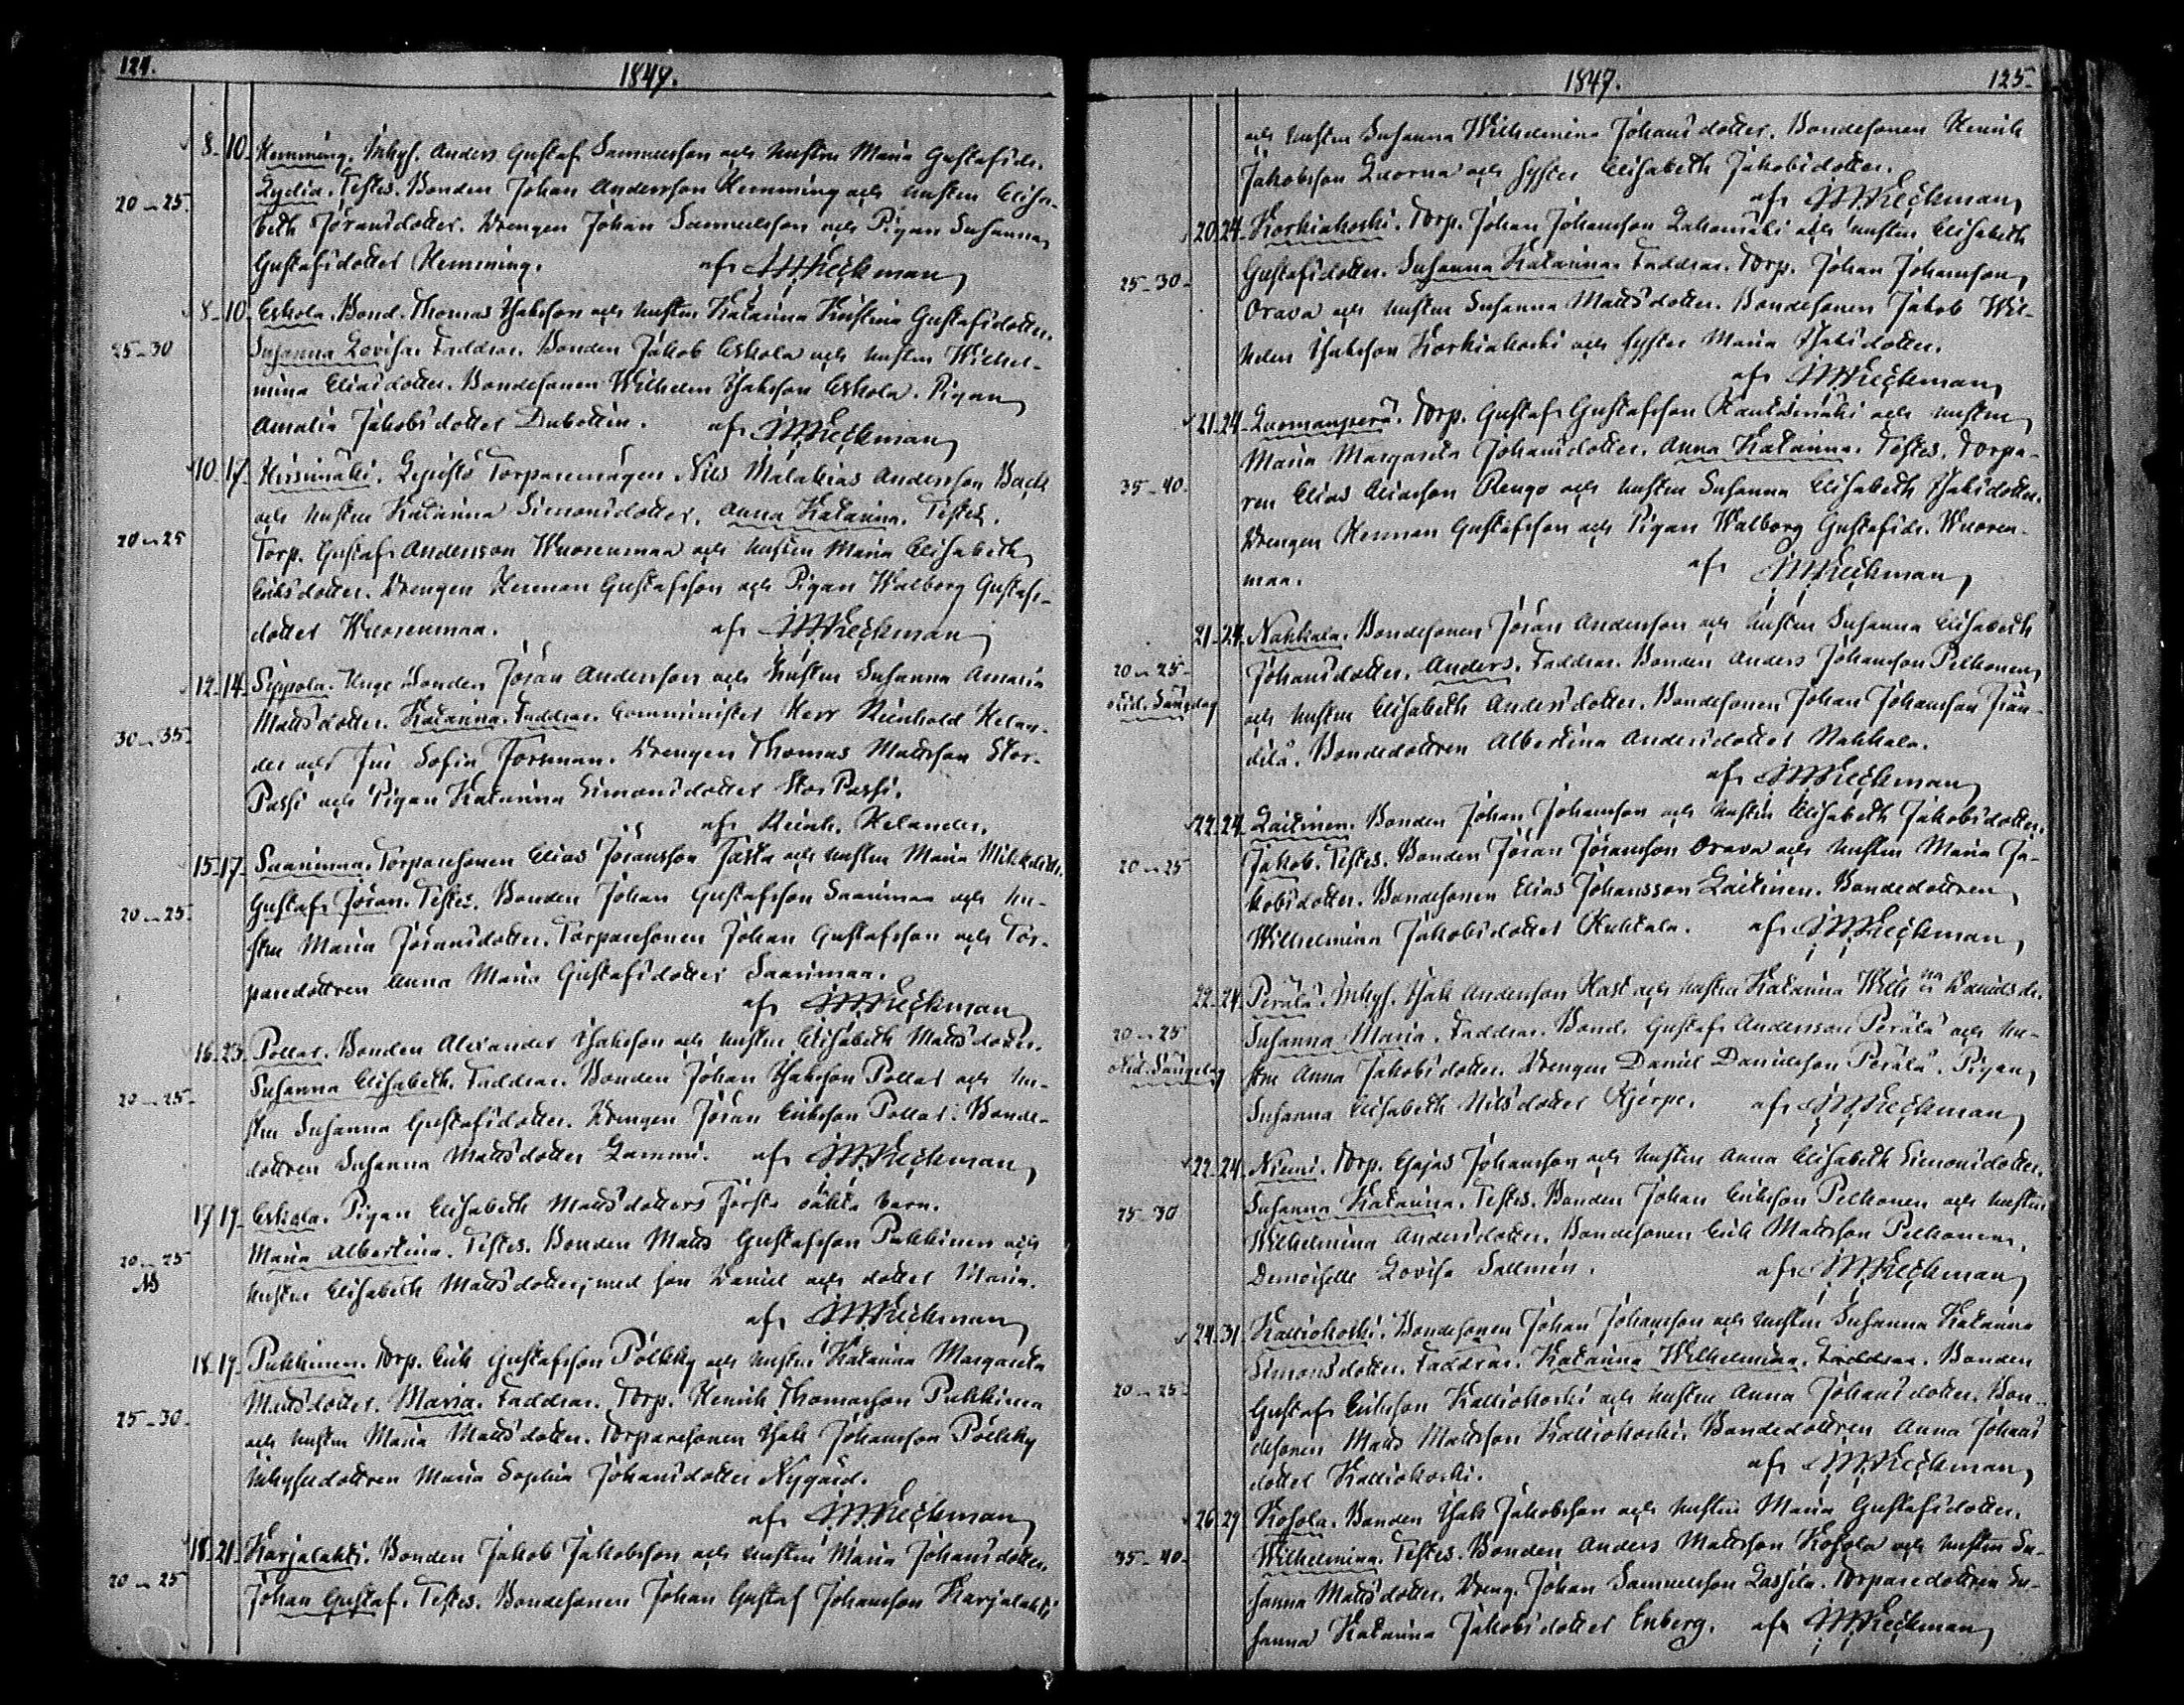 124.
1847.
8. 10. Hemming. Inhys. Anders Gustaf Samuelsson och hustru Maria Gustafsdr.
20-25. Lydia. Testes. Bonden Johan Andersson Hemming och hustru Elisa-
beth Jöransdotter. Drengen Johan Samuelsson och Pigan Susanna
Gustafsdotter Hemming. af
8-10. Eskola. Bond. Thomas Isaksson och hustru Katarina Kristina Gustafsdotter.
25-30 Susanna Lovisa. Faddrar. Bonden Jakob Eskola och hustru Wilhel-
mina Eliasdotter. Bondesonen Wilhelm Isaksson Eskola. Pigan
Amalia Jakobsdotter af
10. 17. Torparemågen Nils Malakias Andersson Back
och hustru Katarina Simonsdotter. Anna Katarina. Testes.
20-25 Torp. Gustaf Andersson Wuorenmaa och hustru Maria Elisabeth
Eriksdotter. Drengen Herman Gustafsson och Pigan Walborg Gustafs-
dotter Wuorenmaa. af
12. 14. Sippola. Unge Bonden Jöran Andersson och hustru Susanna Amalia
Mattsdotter. Katarina. Faddrar. Comminister Herr Reinhold Helan-
30-35. der och Fru Sofia Forsman. Drengen Thomas Mattsson Stor-
Passi och Pigan Katarina Simonsdotter Stor Passi.
af Reinh. Helander.
15. 17. Saarimaa. Torparesonen Elias Jöransson och hustru Maria
20-25. Gustaf Jöran. Testes. Bonden Johan Gustafsson Saarimaa och hu-
stru Maria Jöransdotter. Torparesonen Johan Gustafsson och Tor-
paredottren Anna Maria Gustafsdotter Saarimaa.
af
16. 23. Pollar. Bonden Alexander Isaksson och hustru Elisabeth Mattsdotter.
20-25- Susanna Elisabeth. Faddrar. Bonden Johan Isaksson Pollar och hu-
stru Susanna Gustafsdotter. Drengen Jöran Eriksson Pollar. Bonde-
dottren Susanna Mattsdotter Lammi. af
17. 19. Eskola. Pigan Elisabeth Mattsdotters första oäkta barn.
20-25 Maria Albertina. Testes. Bonden Matts Gustafsson Pukkinen och
hustru Elisabeth Mattsdotter, med son Daniel och dotter Maria.
af
18. 19. Pukkinen. Torp. Erik Gustafsson Pölkky och hustru Katarina Margareta
Mattsdotter. Maria. Faddrar. Torp. Henrik Thomasson Pukkinen
25-30. och hustru Maria Mattsdotter. Torparesonen Isak Johansson Pölkky
Inhysedottren Maria Sophia Johansdotter Nygård.
af
18. 21. Karjalahti. Bonden Jakob Jakobsson och hustru Maria Johansdotter.
20-25 Johan Gustaf. Testes. Bondesonen Johan Gustaf Johansson Karjalahti
1847.
125.
och hustru Susanna Wilhelmina Johansdotter. Bondesonen Henrik
Jakobsson Luoma och syster Elisabeth Jakobsdotter.
af
20. 24. Korkiakoski. Torp. Johan Johansson och hustru Elisabeth
25-30- Gustafsdotter. Susanna Katarina. Faddrar. Torp. Johan Johansson
Orava och hustru Susanna Mattsdotter. Bondesonen Jakob Wil-
helm Isaksson Korkiakoski och syster Maria Isaksdotter.
af
21. 24. Luomanperä. Torp. Gustaf Gustafsson Rautamäki och hustru
Maria Margareta Johansdotter. Anna Katarina. Testes. Torpa-
35-40. ren Elias Eliasson Rengo och hustru Susanna Elisabeth Isaksdotter.
Drengen Herman Gustafsson och Pigan Walborg Gustafsdr. Wuoren-
maa. af
21. 24. Nahkala. Bondesonen Jöran Andersson och hustru Susanna Elisabeth
20-25- Johansdotter. Anders. Faddrar. Bonden Anders Johansson Pelkonen
och hustru Elisabeth Andersdotter. Bondesonen Johan Johansson
Bondedottren Albertina Andersdotter Nahkala.
af
22. 24. Laitinen. Bonden Johan Johansson och hustru Elisabeth Jakobsdotter.
20-25 Jakob. Testes. Bonden Jöran Jöransson Orava och hustru Maria Ja-
kobsdotter. Bondesonen Elias Johansson Laitinen. Bondedottren
Wilhelmina Jakobsdotter Ruhkala. af
22. 24. Perälä. Inhys. Isak Andersson Kask och hustru Katarina Danielsdr.
20-25 Susanna Maria. Faddrar. Bond. Gustaf Andersson Perälä och hu-
stru Anna Jakobsdotter. Drengen Daniel Danielsson Perälä. Pigan
Susanna Elisabeth Nilsdotter af
22. 24. Niemi. Torp. Esajas Johansson och hustru Anna Elisabeth Simonsdotter.
25-30 Susanna Katarina. Testes. Bonden Johan Eriksson Pelkonen och hustru
Wilhelmina Andersdotter. Bondesonen Erik Mattsson Pelkonen.
Demoiselle Lovisa Sallmén. af
24. 31. Kalliokoski. Bondesonen Johan Johansson och hustru Susanna Katarina
20-25- Simonsdotter. Faddrar. Katarina Wilhelmina. Faddrar. Bonden
Gustaf Eriksson Kalliokoski och hustru Anna Johansdotter. Bon-
desonen Matts Mattsson Kalliokoski. Bondedottren Anna Johans
dotter Kalliokoski. af
26. 29 Kosola. Bonden Isak Jakobsson och hustru Maria Gustafsdotter.
35-40- Wilhelmina. Testes. Bonden Anders Mattsson Kosola och hustru Su-
sanna Mattsdotter. Dreng. Johan Samuelsson Lassila. Torparedottren Su-
sanna Katarina Jakobsdotter Enberg. af